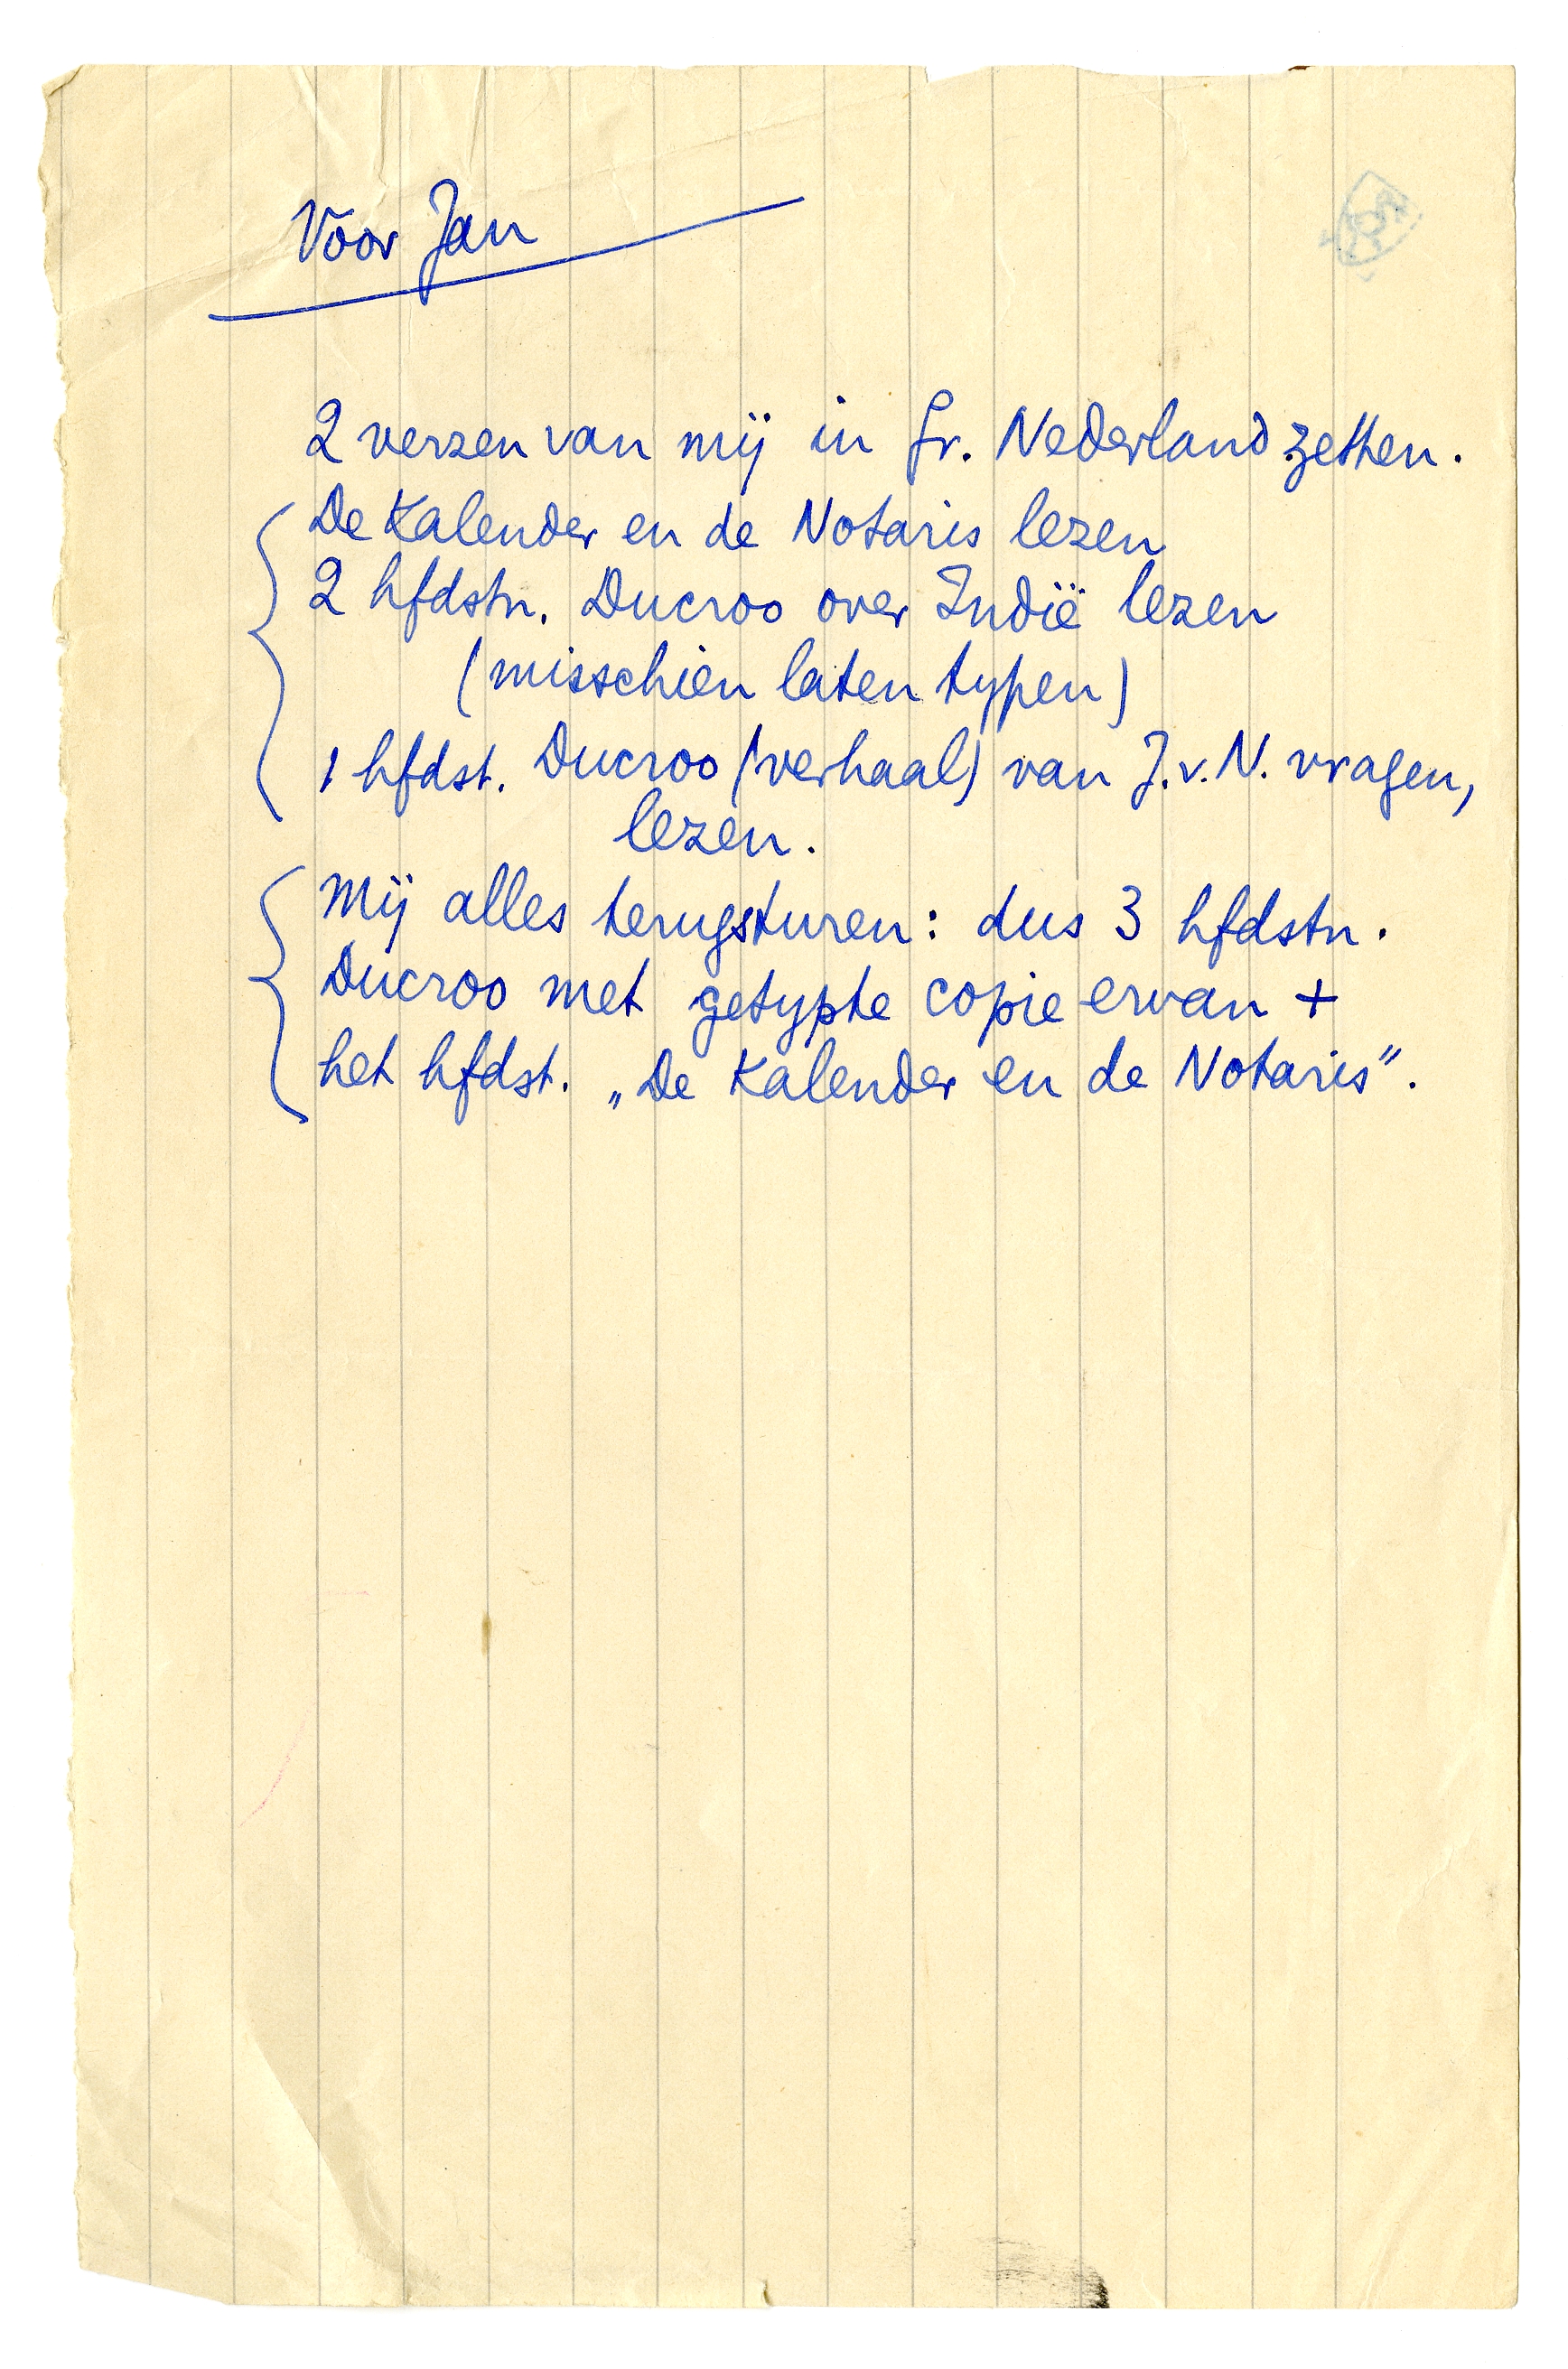 Voor Jan
2 verzen van mij in Gr. Nederland zetten.
De Kalender en de Notaris lezen
2 hfdstn. Ducroo over Indië lezen
(misschien laten typen)
1 hfdst. Ducroo (verhaal) van J.v.N. vragen,
lezen.
Mij alles terugsturen: dus 3 hfdstn.
Ducroo met getypte copie ervan +
het hfdst. „De Kalender en de Notaris”.